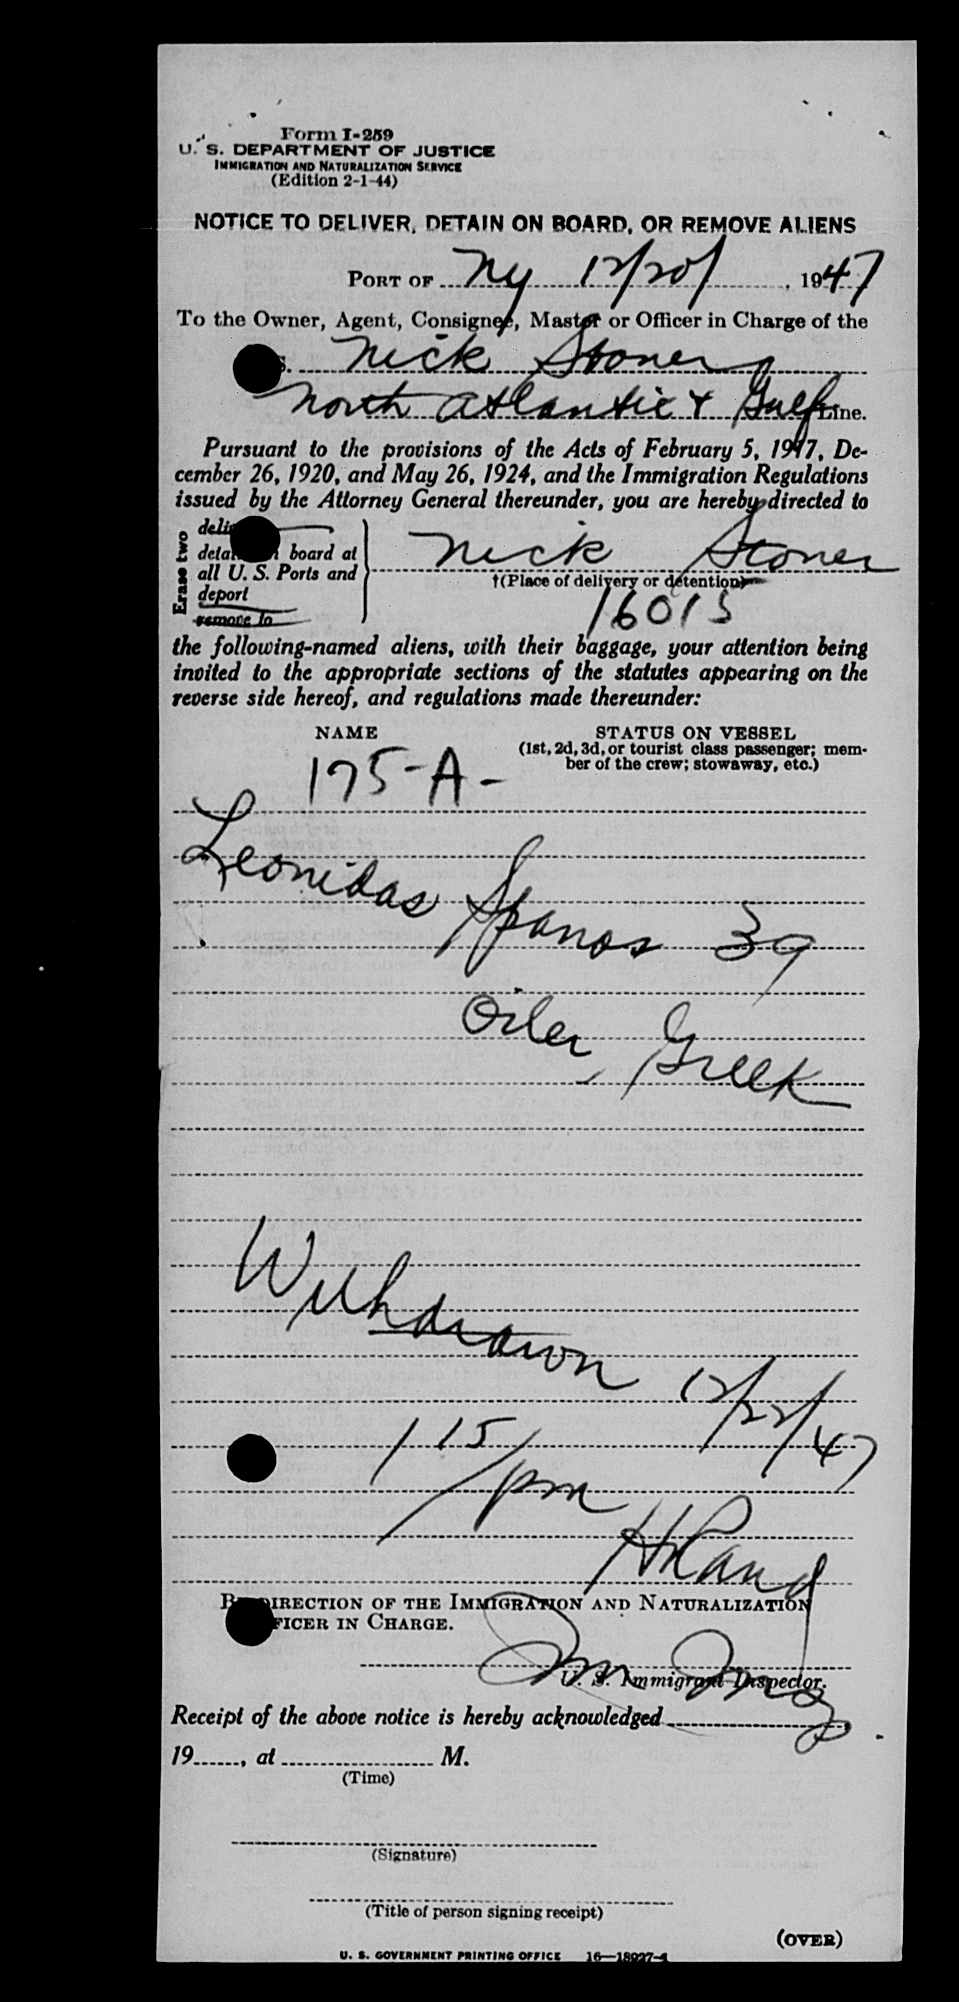 Form I-259
U. S. DEPARTMENT OF JUSTICE
IMMIGRATION AND NATURALIZATION SERVICE
(Edition 2-1-44)
NOTICE TO DELIVER, DETAIN ON BOARD, OR REMOVE ALIENS
PORT OF Ny 12/20/, 1947
To the Owner, Agent, Consignee, Master or Officer in Charge of the
S. Nick Stoner
North Atlantic & Gulf Line.
Pursuant to the provisions of the Acts of February 5, 1917, De-
cember 26, 1920, and May 26, 1924, and the Immigration Regulations
issued by the Attorney General thereunder, you are hereby directed to
Erase two
board at
all U. S. Ports and
deport
remove to
Nick Stoner
†(Place of delivery or detention)
16015
the following-named aliens, with their baggage, your attention being
invited to the appropriate sections of the statutes appearing on the
reverse side hereof, and regulations made thereunder:
NAME STATUS ON VESSEL
(1st, 2d, 3d, or tourist class passenger; mem-
ber of the crew; stowaway, etc.)
175-A-
Leonidas Spanos 39
Oiler, Greek
Withdrawn 12/22/47
1 15/pm
BY DIRECTION OF THE IMMIGRATION AND NATURALIZATION
OFFICER IN CHARGE.
U. S. Immigrant Inspector.
Receipt of the above notice is hereby acknowledged
19......, at .................... M.
(Time)
(Signature)
(Title of person signing receipt)
(OVER)
U. S. GOVERNMENT PRINTING OFFICE 16—18927-1